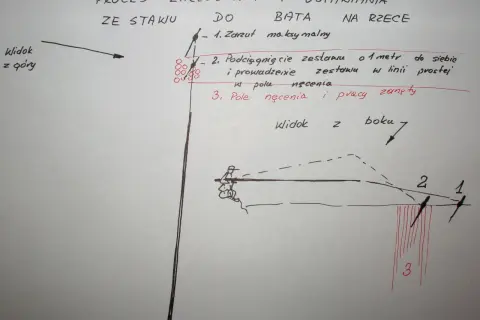 ZE STAWU DO BATA NA RZECE
Widok
z góry
- 1. Zarzut maksymalny
- 2. Podciągnięcie zestawu o 1 metr do siebie
i prowadzenie zestawu w linii prostej
w polu nęcenia
3. Pole nęcenia i pracy zanęty
Widok z boku
2 1
3